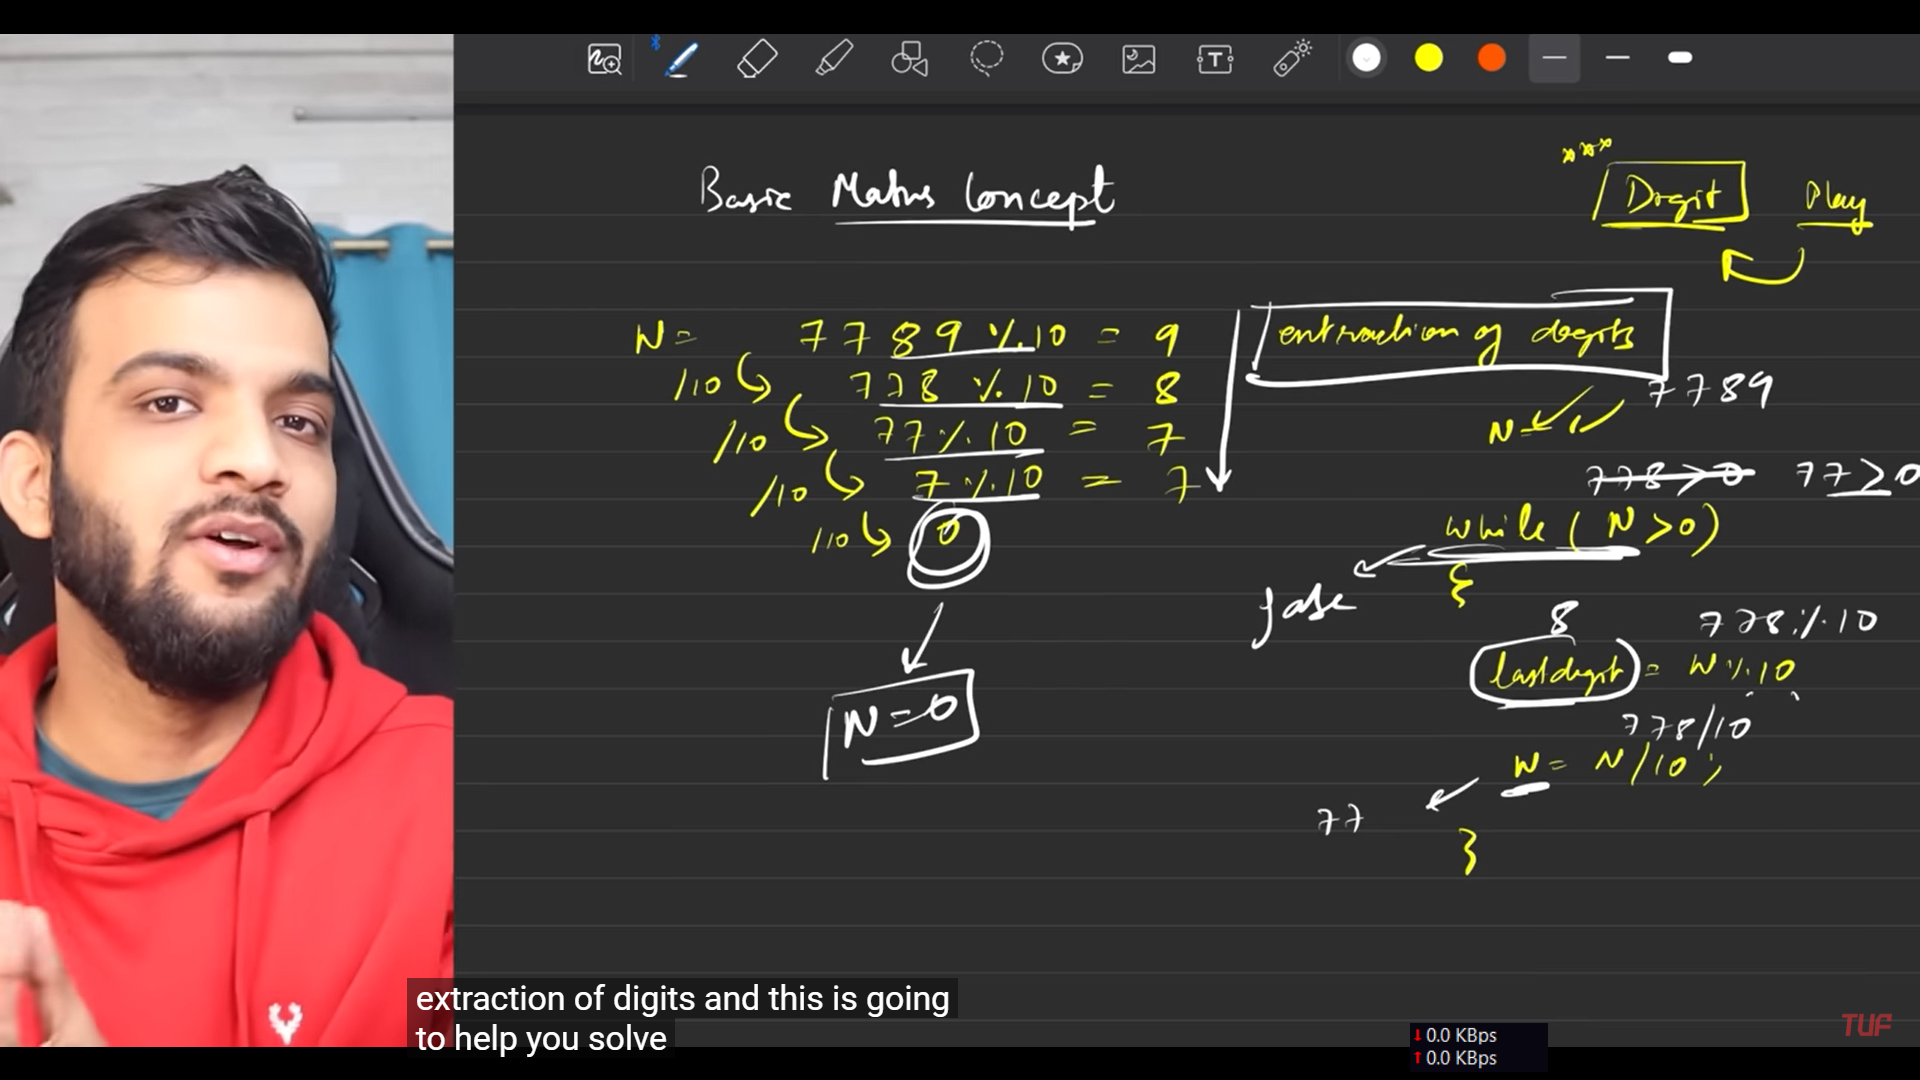 Basic Maths Concept
***
Digit Play
N = 7789 % 10 = 9
/10 778 % 10 = 8
/10 77 % 10 = 7
/10 7 % 10 = 7
/10 0
N = 0
extraction of digits
7789
N =
778 > 0 77 > 0
while ( N > 0 )
false
{
8 778 % 10
lastdigit = N % 10
778/10
N = N/10;
77
}
extraction of digits and this is going
to help you solve
TUF
↓ 0.0 KBps
↑ 0.0 KBps